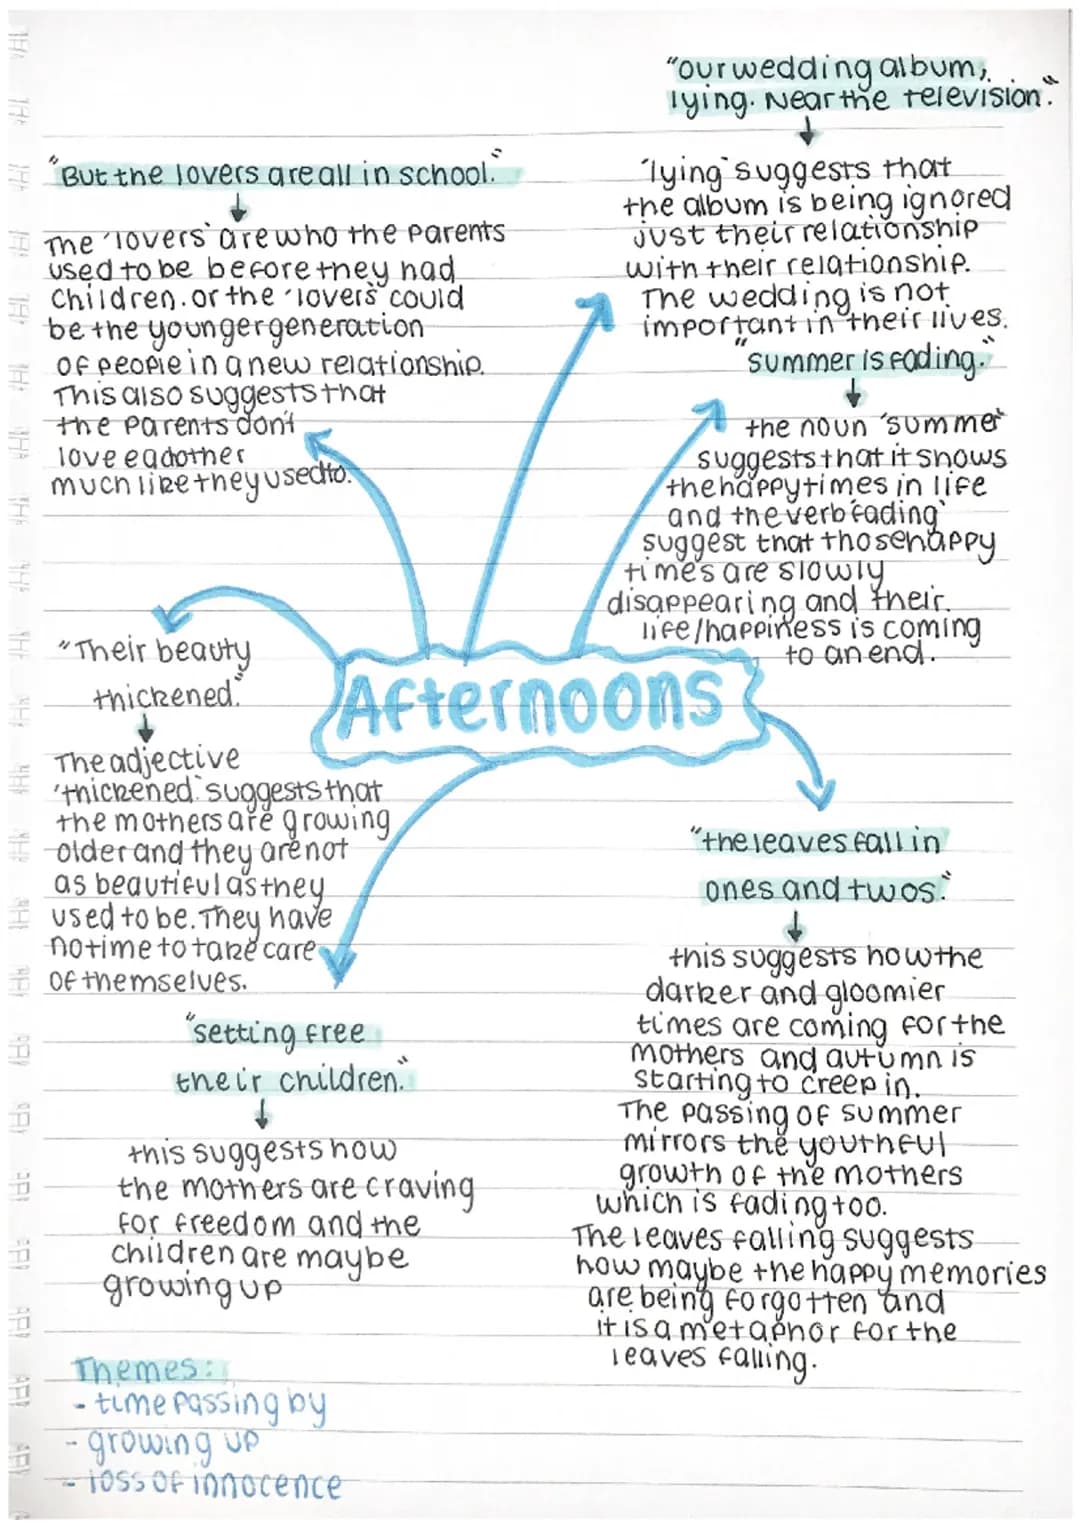 "But the lovers are all in school."
The 'lovers' are who the parents
used to be before they had
children. or the 'lovers' could
be the younger generation
of people in a new relationship.
This also suggests that
the parents don't
love eachother
much like they used to.
"our wedding album,
lying. Near the television."
'lying' suggests that
the album is being ignored
just their relationship
with their relationship.
The wedding is not
important in their lives.
"summer is fading."
the noun 'summer'
suggests that it shows
the happy times in life
and the verb 'fading'
suggest that those happy
times are slowly
disappearing and their
life/happiness is coming
to an end.
Afternoons
"Their beauty
thickened."
The adjective
'thickened' suggests that
the mothers are growing
older and they are not
as beautiful as they
used to be. They have
no time to take care
of themselves.
"setting free
their children."
this suggests how
the mothers are craving
for freedom and the
children are maybe
growing up
"the leaves fall in
ones and twos."
this suggests how the
darker and gloomier
times are coming for the
mothers and autumn is
starting to creep in.
The passing of summer
mirrors the youthful
growth of the mothers
which is fading too.
The leaves falling suggests
how maybe the happy memories
are being forgotten and
it is a metaphor for the
leaves falling.
Themes:
- time passing by
- growing up
- loss of innocence